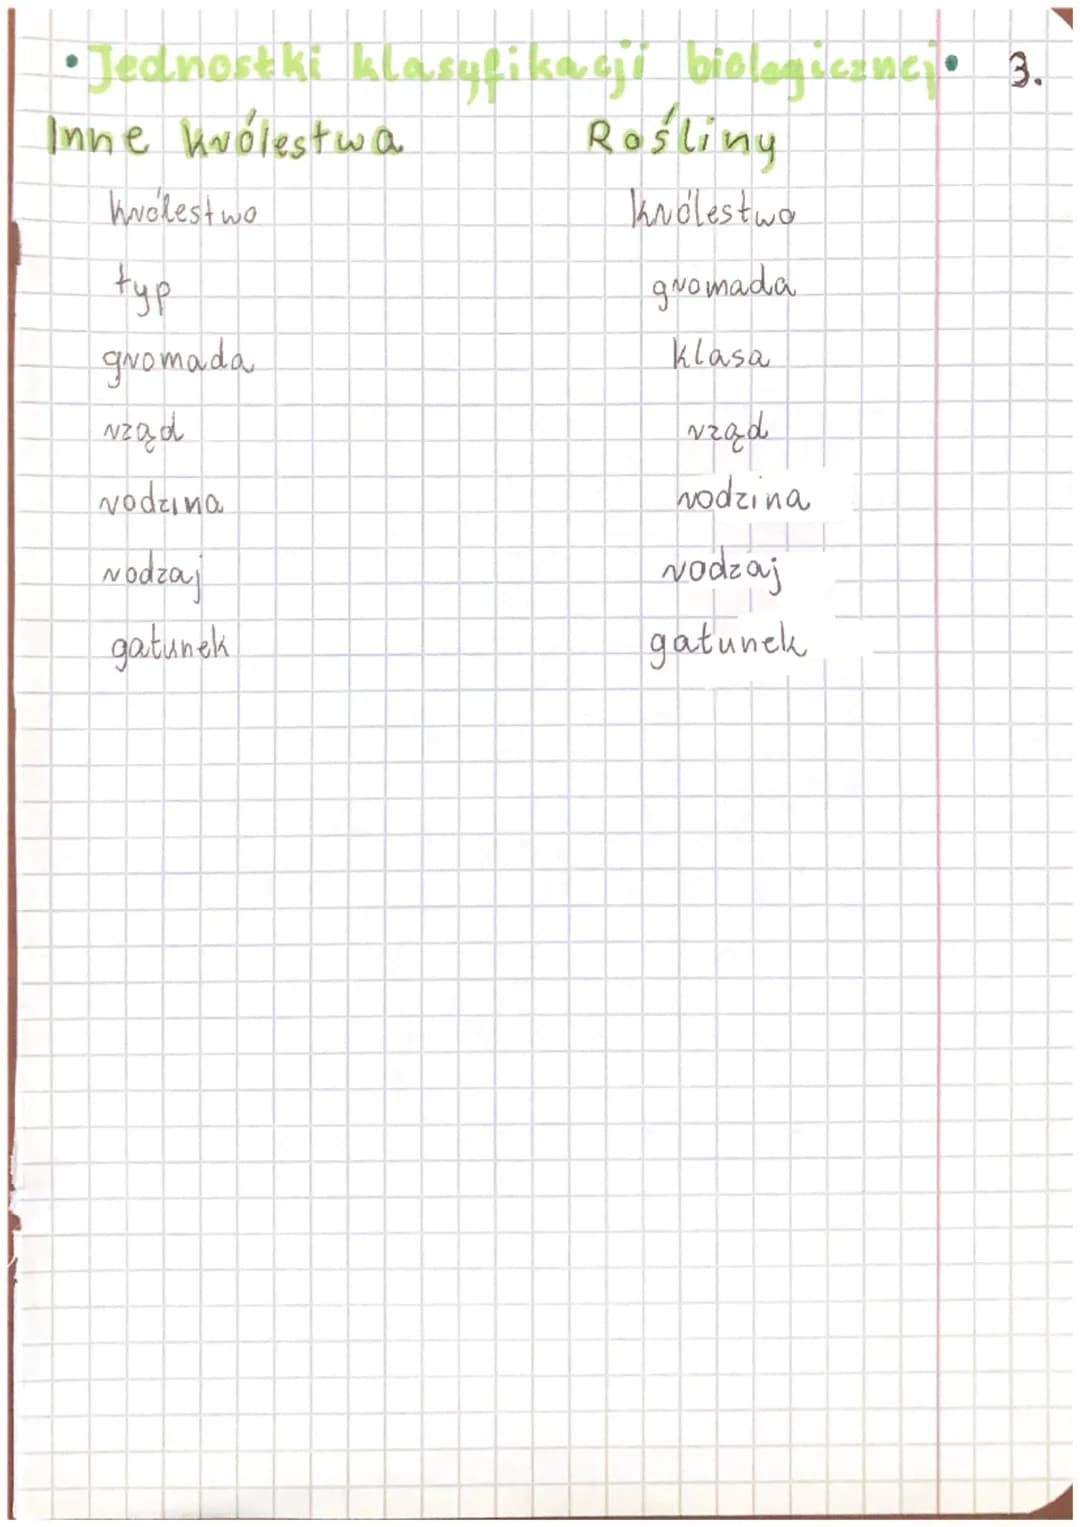 • Jednostki klasyfikacji biologicznej • 3.
Inne królestwa Rośliny
królestwo królestwo
typ gromada
gromada klasa
rząd rząd
rodzina rodzina
rodzaj rodzaj
gatunek gatunek